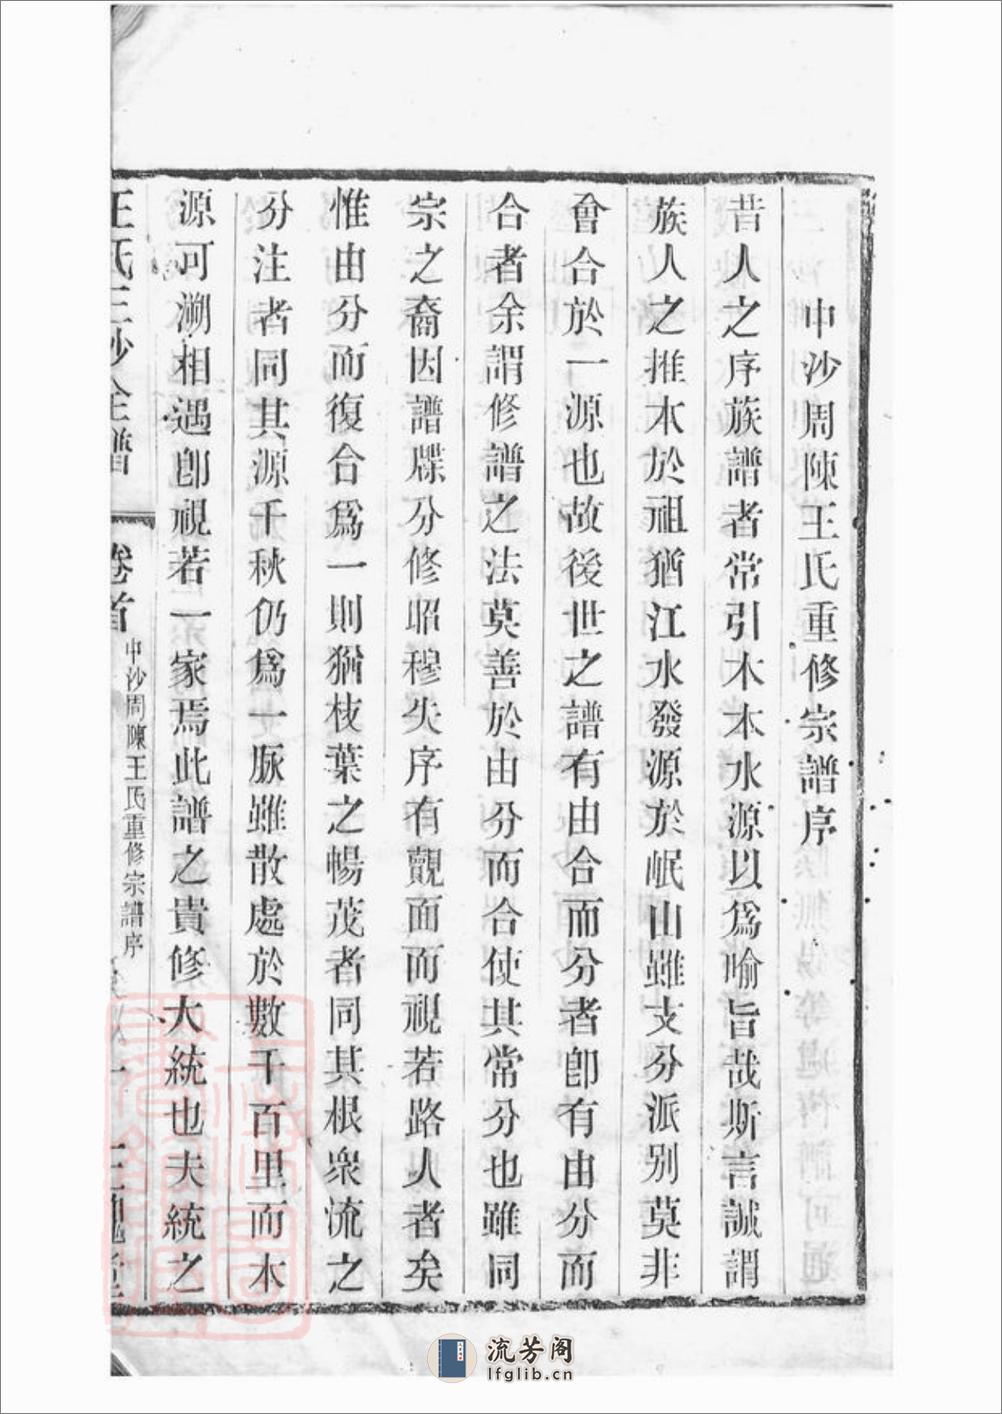 中沙周陳王氏重修宗譜序
昔人之序族譜者常引木本水源以爲喻旨哉斯言誠謂
族人之推本於祖猶江水發源於岷山雖支分派别莫非
會合於一源也故後世之譜有由合而分者卽有由分而
合者余謂修譜之法莫善於由分而合使其常分也雖同
宗之裔因譜牒分修昭穆失序有覿面而視若路人者矣
惟由分而復合爲一則猶枝葉之暢茂者同其根衆流之
分注者同其源千秋仍爲一脈雖散處於數千百里而木
源可溯相遇卽視若一家焉此譜之貴修大統也夫統之
王氏三沙全譜
卷首
中沙周陳王氏重修宗譜序
流芳阁
lfglib.cn